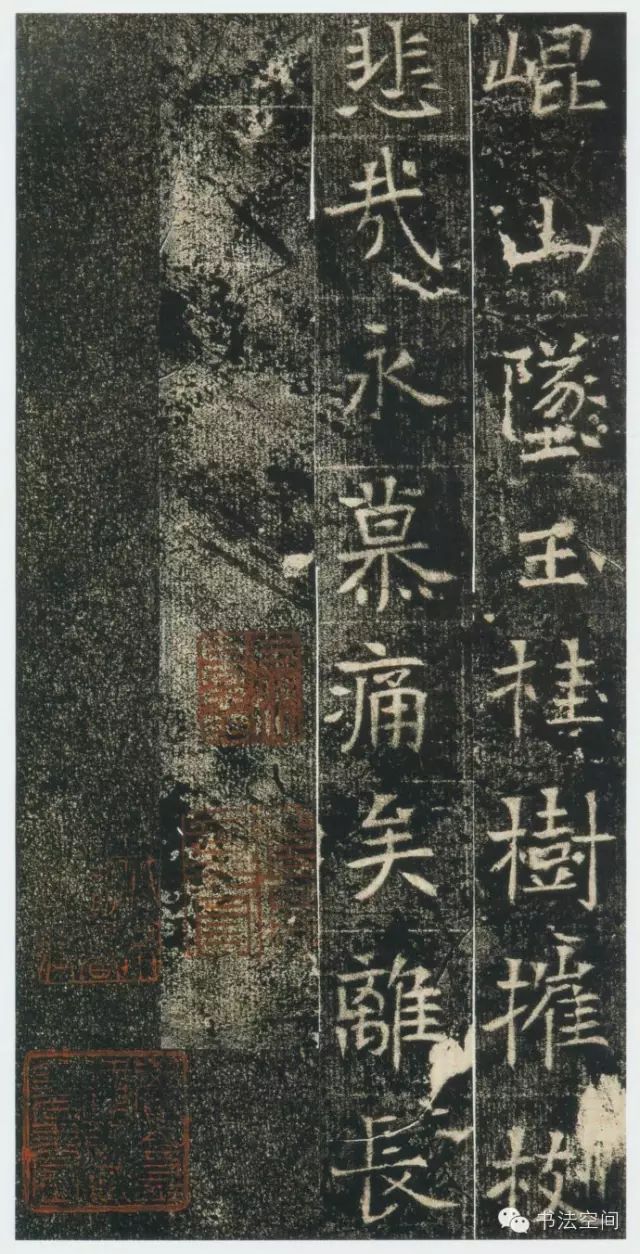 崐山墜玉桂樹摧枝
悲哉永慕痛矣離長
书法空间